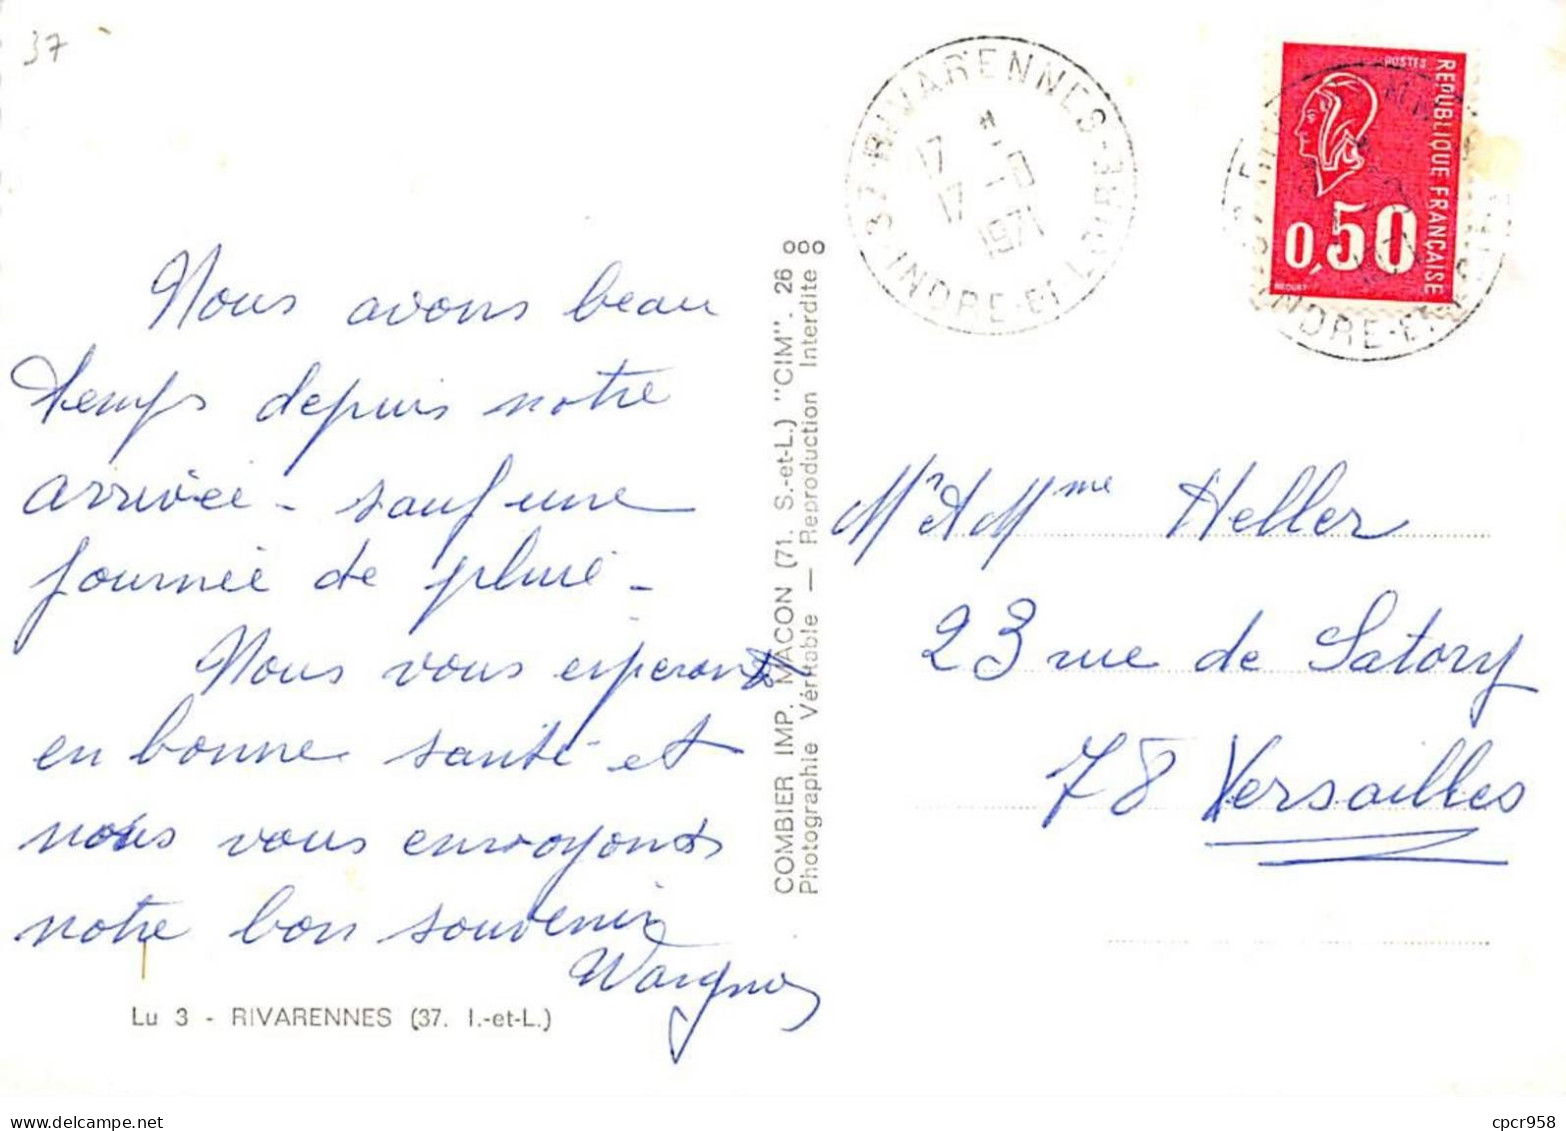 37
Nous avons beau
temps depuis notre
arrivée - sauf une
journée de pluie -
Nous vous esperons
en bonne santé et
nous vous envoyons
notre bon souvenir
Lu 3 - RIVARENNES (37. I.-et-L.)
COMBIER IMP. MACON (71. S.-et-L.) "CIM". 26
Photographie Véritable — Reproduction Interdite
37 RIVARENNES
17 H
17 -
1971
INDRE-ET-LOIRE
POSTES
REPUBLIQUE FRANÇAISE
0,50
BEQUET
INDRE-ET
Mr & Mme Heller
23 rue de Satory
78 Versailles
cpcr958